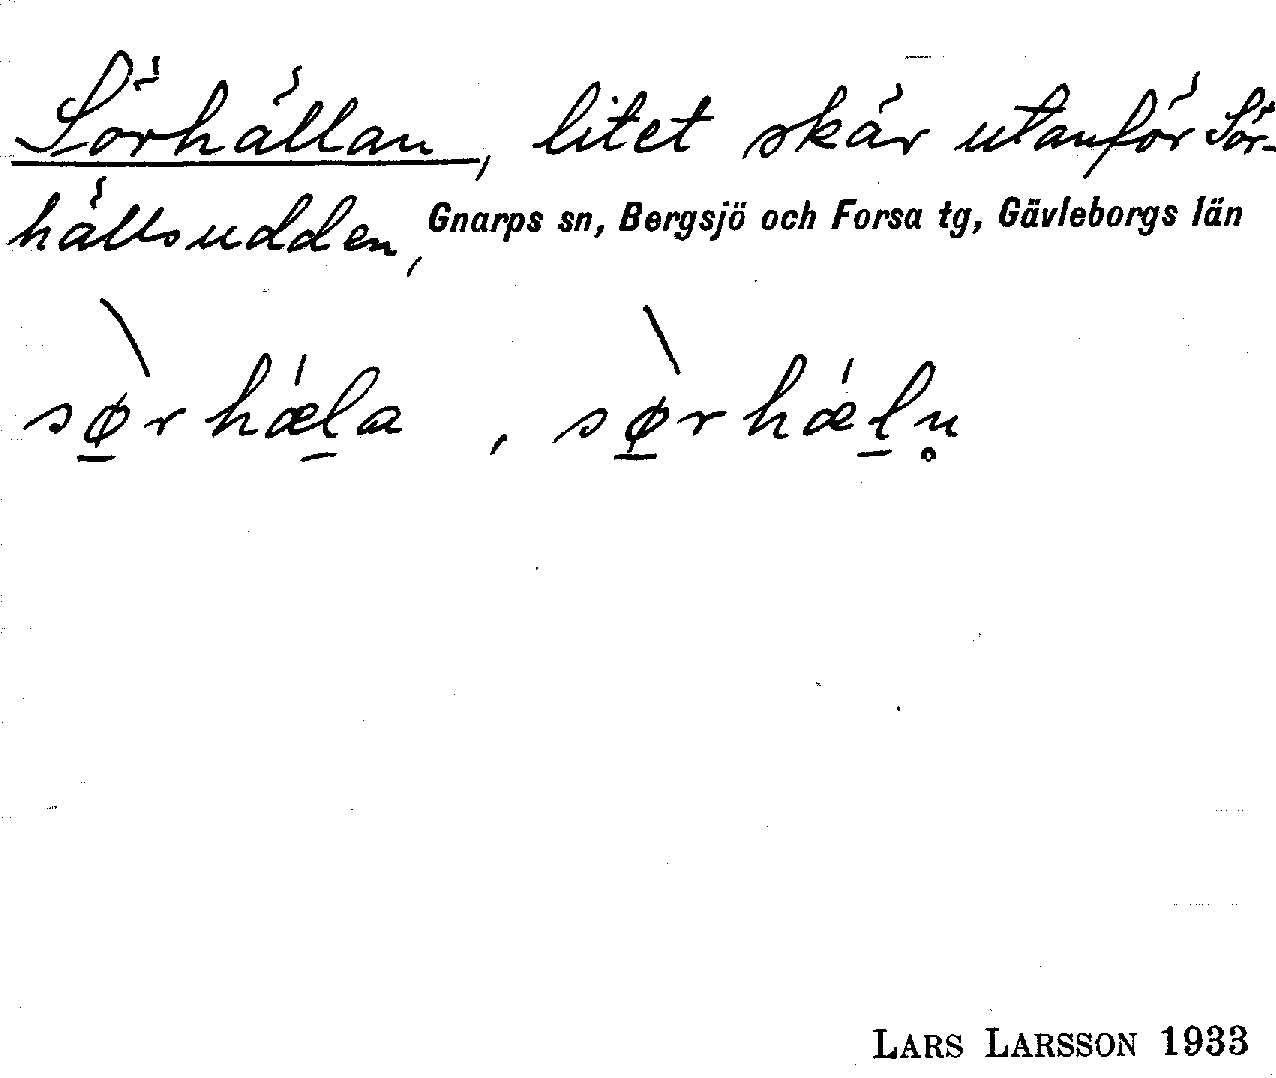 Sörhällan, litet skär utanför Sör-
hällsudden,
Gnarps sn, Bergsjö och Forsa tg, Gävleborgs län
sø̱̀rhǽḻa , sø̱̀rhǽḻn̥
LARS LARSSON 1933